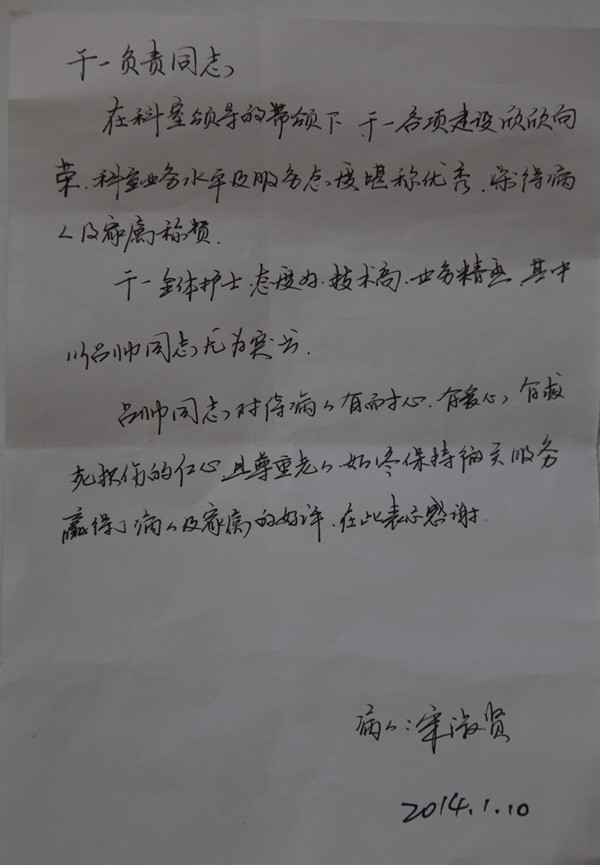 干一负责同志
在科室领导的带领下 干一各项建设欣欣向
荣、科室业务水平及服务态度堪称优秀、深得病
人及家属称赞.
干一全体护士.态度好.技术高、业务精通.其中
以吕帅同志尤为突出.
吕帅同志对待病人有耐心.有爱心,有救
死扶伤的仁心.且尊重老人 始终保持微笑服务
赢得了病人及家属的好评.在此表示感谢.
病人:宋淑贤
2014.1.10